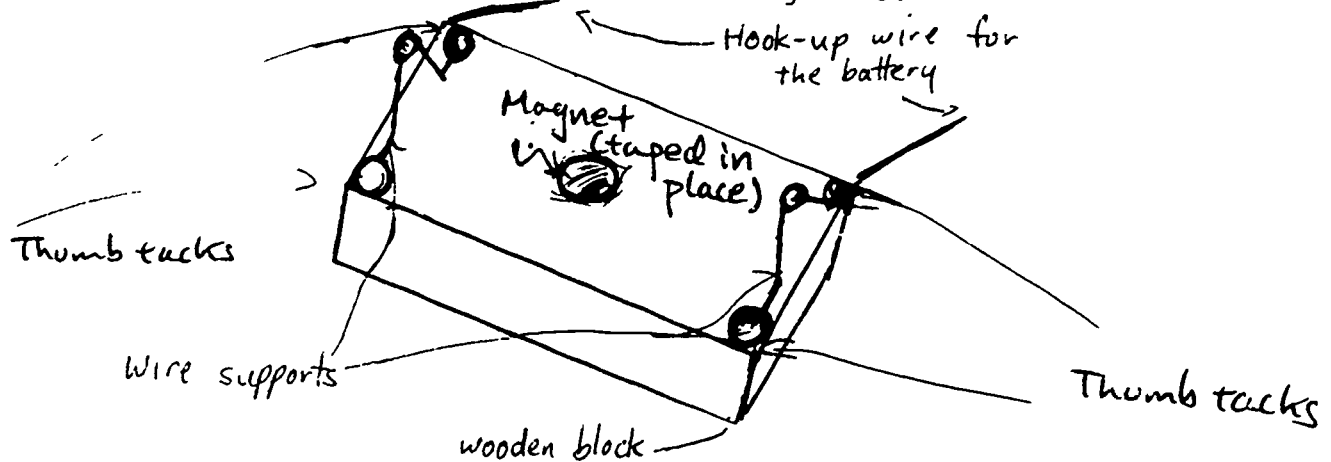 Hook-up wire for
the battery
Magnet
(taped in
place)
Thumb tacks
Wire supports
Thumb tacks
wooden block